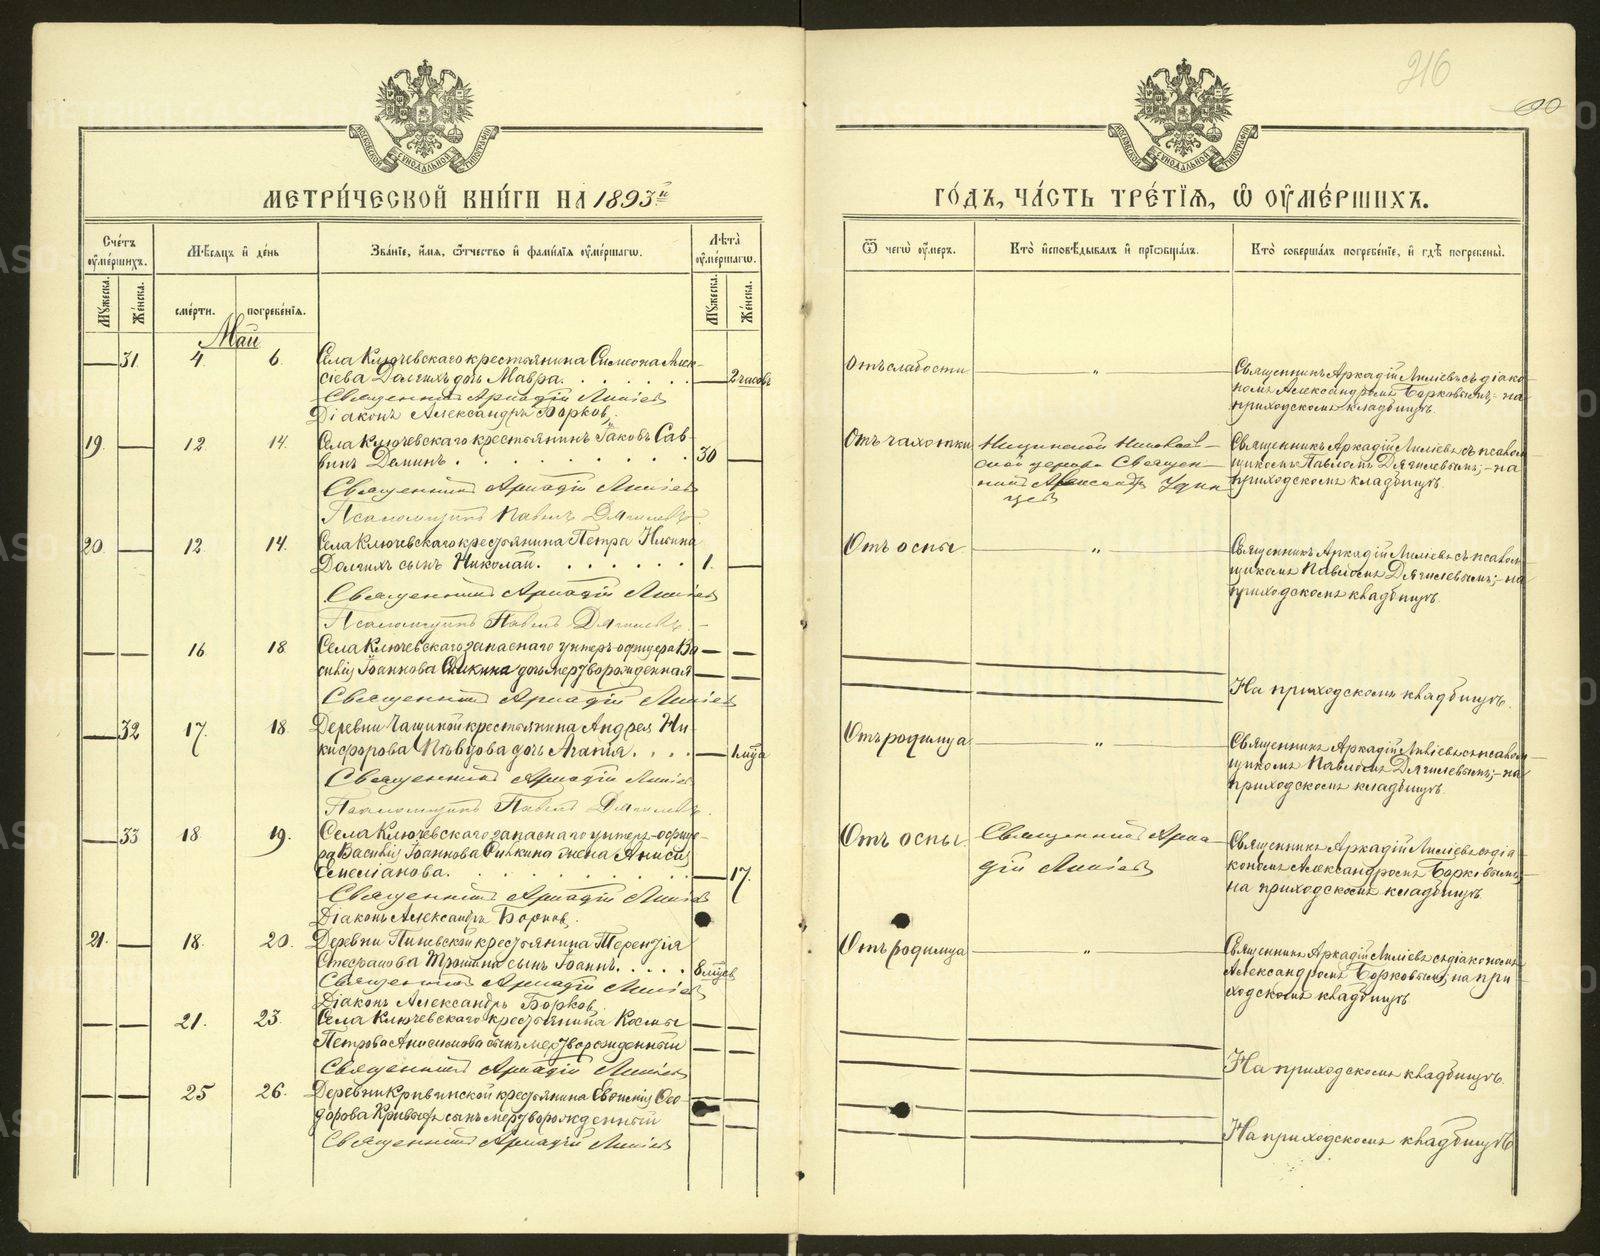 216
90
МЕТРИ́ЧЕСКОЙ КНИ́ГИ НА 1893й
ГО́ДЪ, ЧА́СТЬ ТРЕ́ТІѦ, Ѡ҆ ОУ҆МЕ́РШИХЪ.
Сче́тъ оу҆ме́ршихъ.
Мꙋ́жеска.
Же́нска.
Мѣ́сяцъ и҆ де́нь
сме́рти.
погребе́нїѧ.
Зва́нїе, и҆́мѧ, ѿ́чество и҆ фами́лїѧ оу҆ме́ршагѡ.
Лѣ́та̀ оу҆ме́ршагѡ.
Мꙋ́жеска.
Же́нска.
Ѿ чегѡ̀ оу҆́меръ.
Кто̀ и҆сповѣ́дывалъ и҆ прїѡбща́лъ.
Кто̀ соверша́лъ погребе́нїе, и҆ гдѣ̀ погребены̀.
Май
31 4. 6. Села Ключевскаго крестьянина Симеона Алек-
сіева Долгихъ дочь Мавра. 2 часовъ
Священникъ Аркадій Лиліевъ
Діаконъ Александръ Борковъ.
Отъ слабости „
Священникъ Аркадій Лиліевъ съ діако-
номъ Александромъ Борковымъ; на
приходскомъ кладбищѣ.
19 12 14. Села Ключевскаго крестьянинъ Іаковъ Сав-
винъ Деминъ. 30
Священникъ Аркадій Лиліевъ
Псаломщикъ Павелъ Дягилевъ.
Отъ чахотки
Николаев-
ской церкви Священ-
никъ Александръ
Священникъ Аркадій Лиліевъ съ псалом-
щикомъ Павломъ Дягилевымъ; на
приходскомъ кладбищѣ.
20. 12. 14. Села Ключевскаго крестьянина Петра Ильина
Долгихъ сынъ Николай. 1.
Священникъ Аркадій Лиліевъ
Псаломщикъ Павелъ Дягилевъ.
Отъ оспы „
Священникъ Аркадій Лиліевъ съ псалом-
щикомъ Павломъ Дягилевымъ; на
приходскомъ кладбищѣ.
16 18 Села Ключевскаго запаснаго унтеръ-офицера Ва-
силія Іоаннова дочь мертворожденная
Священникъ Аркадій Лиліевъ
На приходскомъ кладбищѣ.
32 17. 18. Деревни Чащиной крестьянина Андрея Ни-
кифорова Пѣвцова дочь Агапія. 1 мца
Священникъ Аркадій Лиліевъ
Псаломщикъ Павелъ Дягилевъ.
Отъ родимца „
Священникъ Аркадій Лиліевъ съ псалом-
щикомъ Павломъ Дягилевымъ; на
приходскомъ кладбищѣ.
33 18. 19. Села Ключевскаго запаснаго унтеръ-офице-
ра Василія Іоаннова жена Анисія
Емеліанова. 17.
Священникъ Аркадій Лиліевъ
Діаконъ Александръ Борковъ.
Отъ оспы.
Священникъ Арка-
дій Лиліевъ
Священникъ Аркадій Лиліевъ съ діа-
кономъ Александромъ Борковымъ;
на приходскомъ кладбищѣ.
21. 18. 20. Деревни крестьянина Терентія
Стефанова сынъ Іоаннъ. 8 мцевъ
Священникъ Аркадій Лиліевъ
Діаконъ Александръ Борковъ.
Отъ родимца „
Священникъ Аркадій Лиліевъ съ діакономъ
Александромъ Борковымъ; на при-
ходскомъ кладбищѣ
21. 23. Села Ключевскаго крестьянина Космы
Петрова Анисимова сынъ мертворожденный
Священникъ Аркадій Лиліевъ
На приходскомъ кладбищѣ.
25 26. Деревни Кривинской крестьянина Евфимія Ѳео-
дорова сынъ мертворожденный
Священникъ Аркадій Лиліевъ
На приходскомъ кладбищѣ